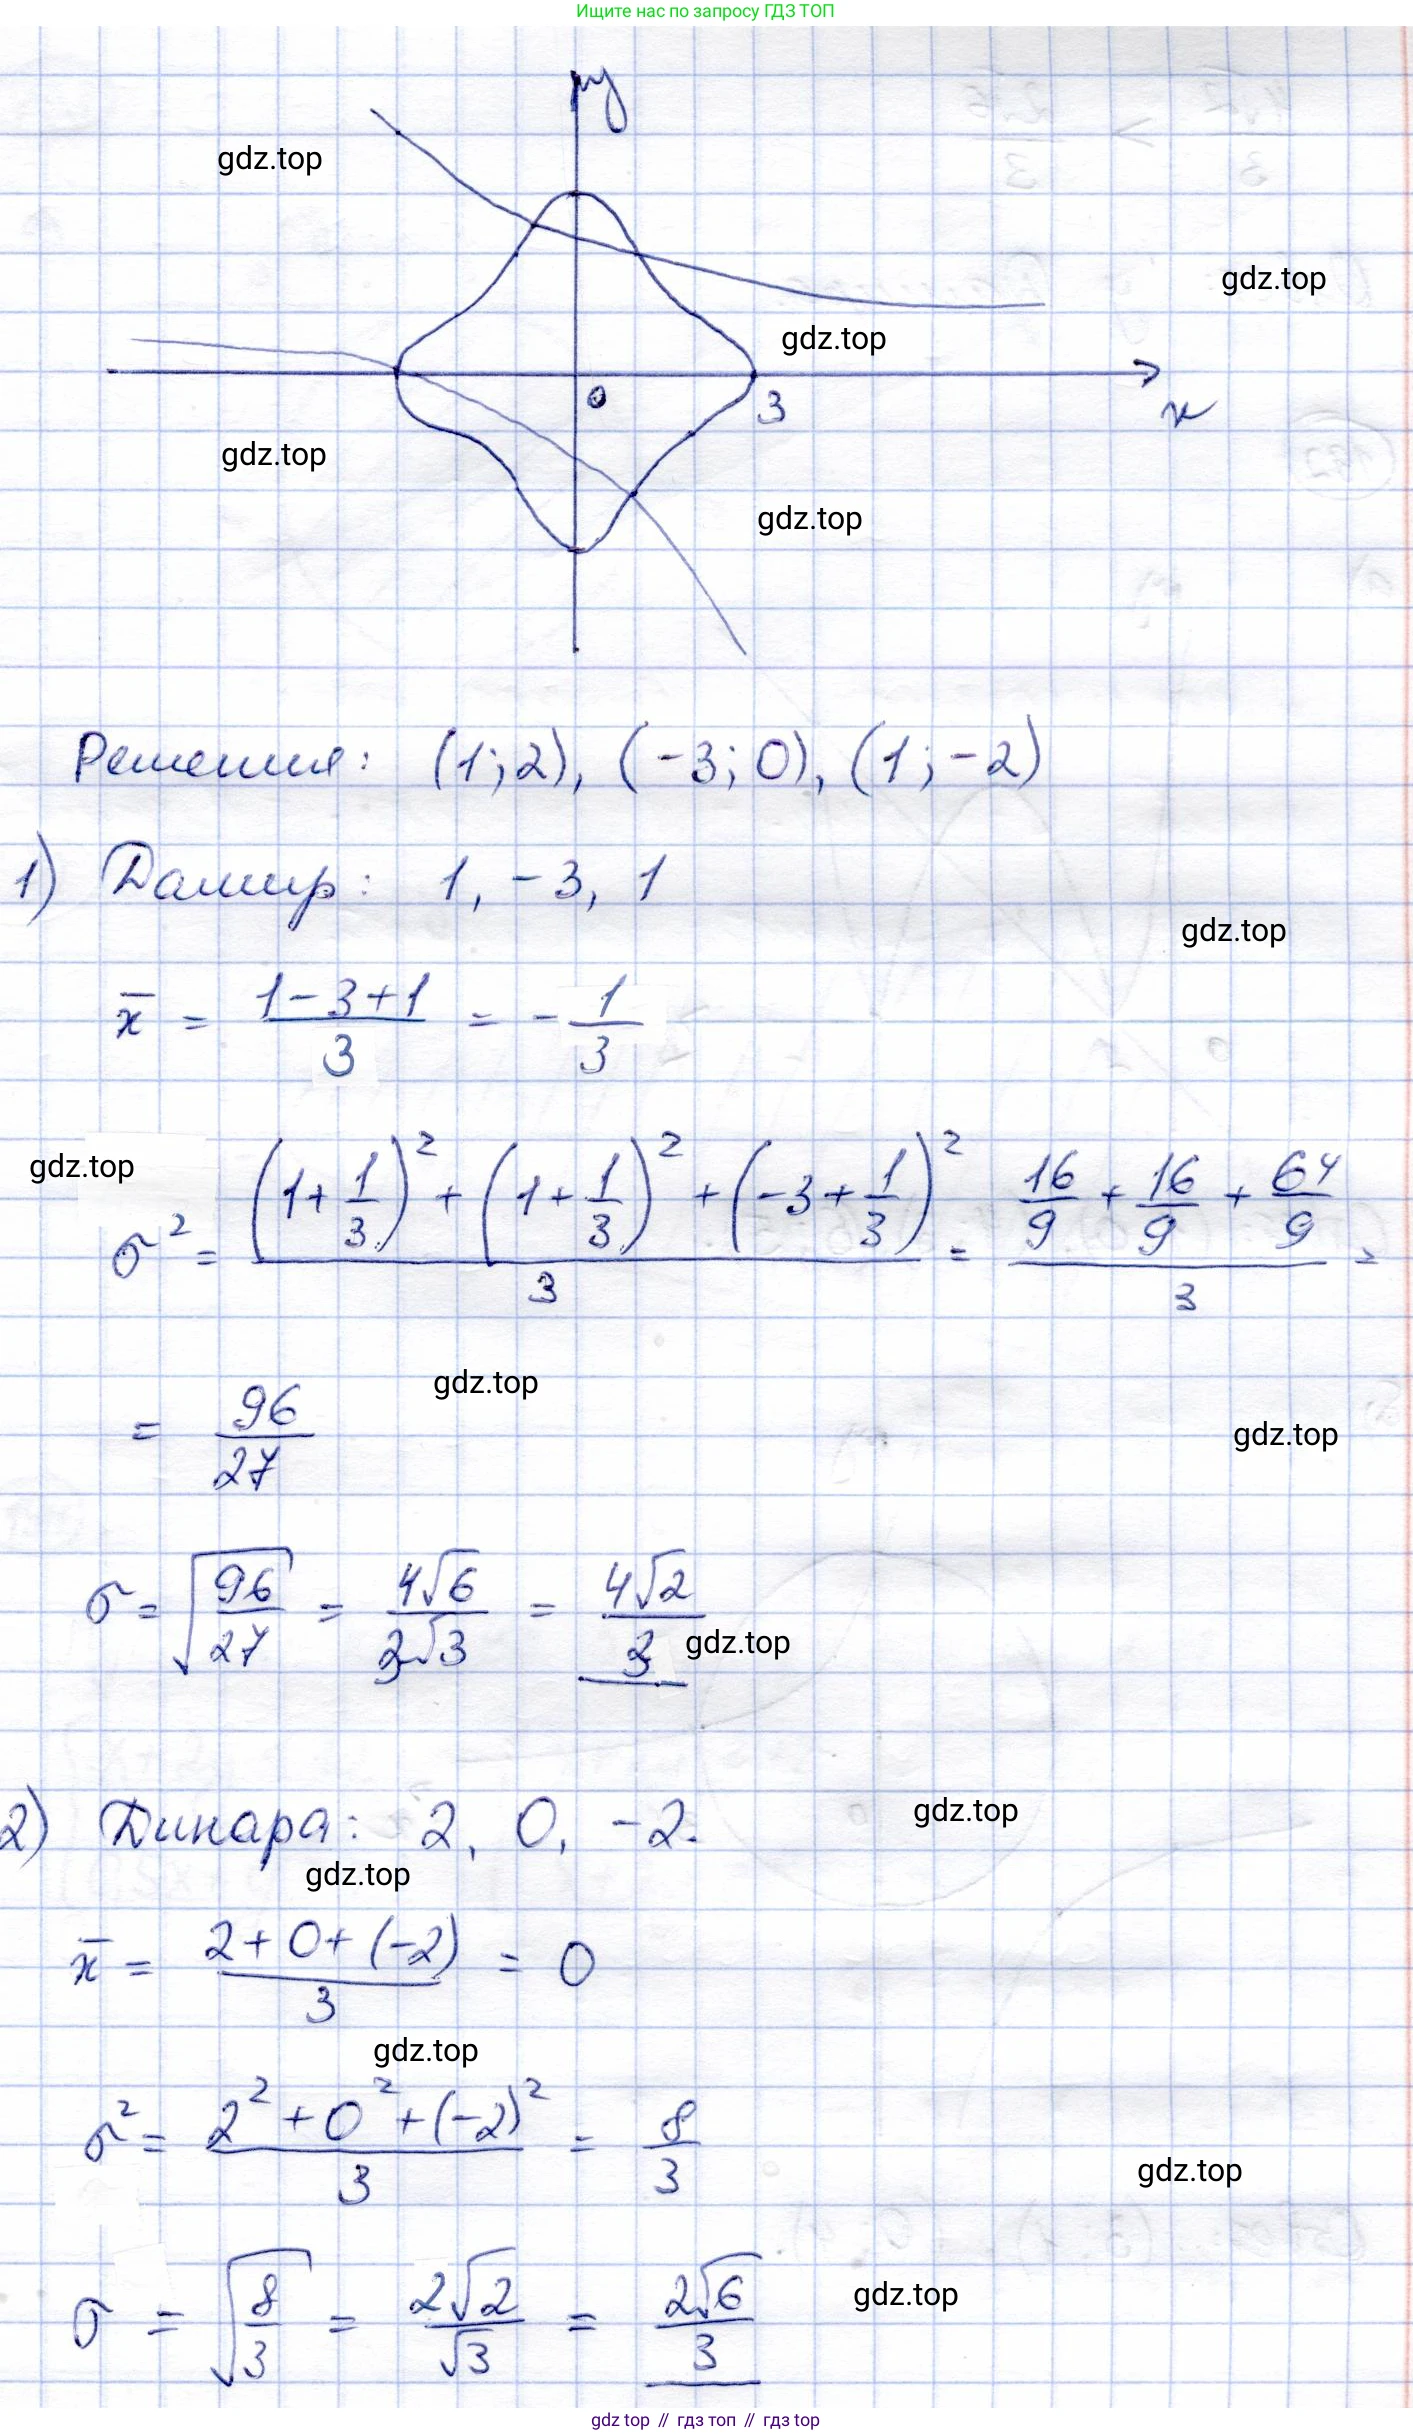 Ищите нас по запросу ГДЗ ТОП
y
gdz.top
gdz.top
gdz.top
0
3
x
gdz.top
gdz.top
Решения: (1; 2), (-3; 0), (1; -2)
1) Дамир: 1, -3, 1
gdz.top
x̄ = (1-3+1)/3 = -1/3
gdz.top
σ² = ((1+1/3)² + (1+1/3)² + (-3+1/3)²)/3 = (16/9 + 16/9 + 64/9)/3 =
gdz.top
= 96/27
gdz.top
σ = √(96/27) = 4√6/3√3 = 4√2/3
gdz.top
2) Динара: 2, 0, -2.
gdz.top
gdz.top
x̄ = (2+0+(-2))/3 = 0
gdz.top
σ² = (2²+0²+(-2)²)/3 = 8/3
gdz.top
σ = √(8/3) = 2√2/√3 = 2√6/3
gdz.top
gdz top // гдз топ // гдз top